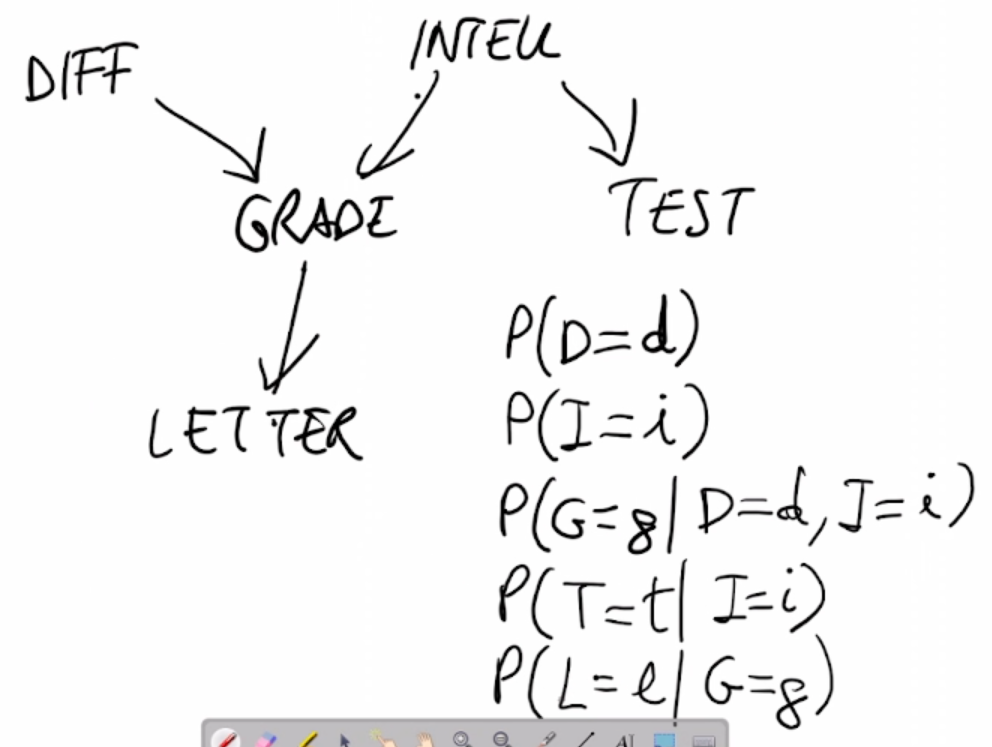 DIFF INTELL
GRADE TEST
LETTER
P(D=d)
P(I=i)
P(G=g| D=d, I=i)
P(T=t| I=i)
P(L=l| G=g)